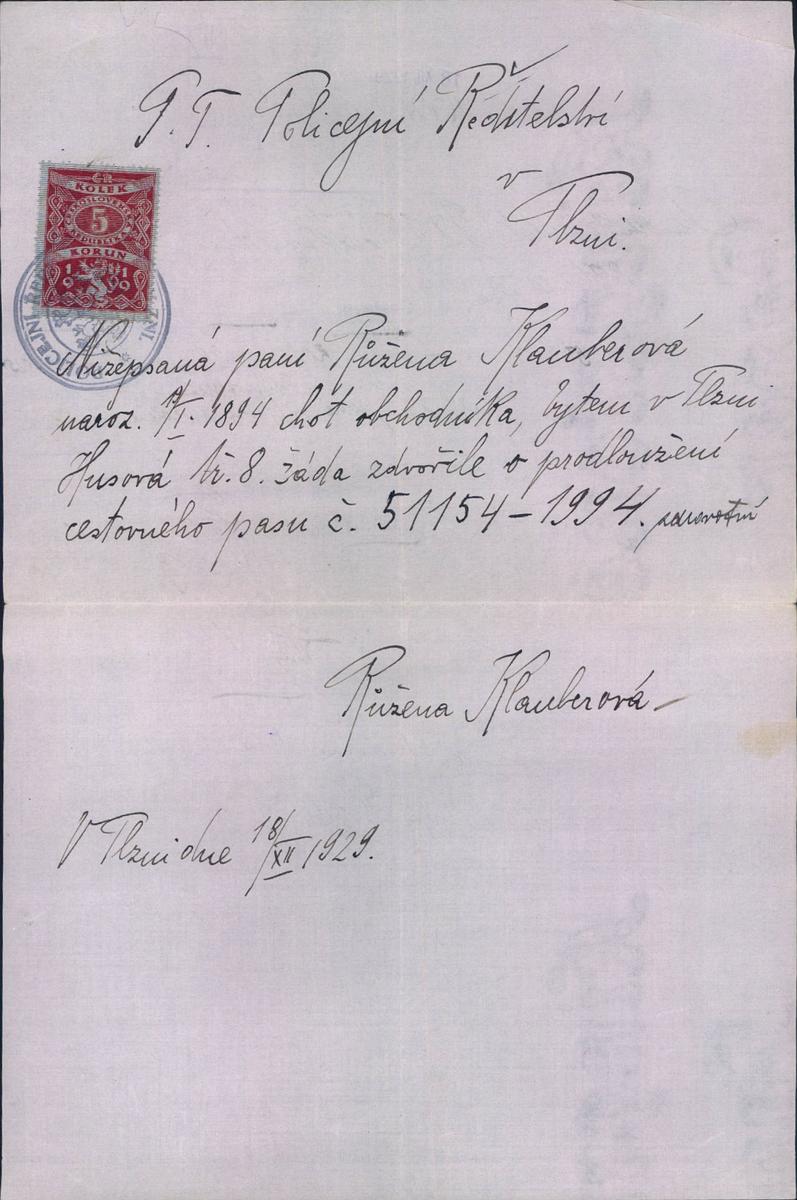 P. T. Policejní Ředitelství
v
Plzni.
KOLEK
ČESKOSLOVENSKÁ
5
REPUBLIKA
KORUN
1919
Nížepsaná paní Růžena Klauberová
naroz. /I. 1894 choť obchodníka, bytem v Plzni
Husová tř. 8. žáda zdvořile o prodloužení
cestovného pasu č. 51154–1994.
Růžena Klauberová
V Plzni dne 18/XII 1929.